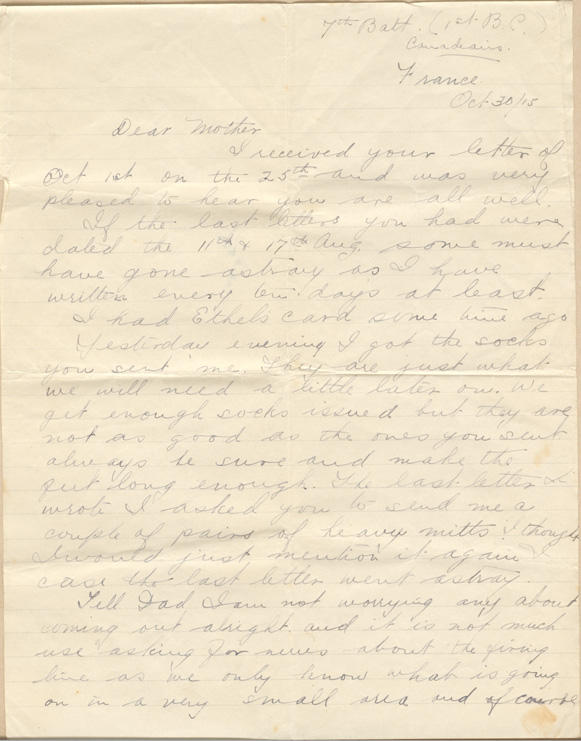 7th Batt. (1st B.C.)
Canadians.
France.
Oct 30/15
Dear Mother
I received your letter of
Oct 1st on the 25th and was very
pleased to hear you are all well.
If the last letters you had were
dated the 11th & 17th Aug. some must
have gone astray as I have
written every ten days at least.
I had Ethel's card some time ago
Yesterday evening I got the socks
you sent me. They are just what
we will need a little later on. We
get enough socks issued but they are
not as good as the ones you sent
always be sure and make the
long enough. The last letter I
wrote I asked you to send me a
couple of pairs of heavy mitts I thought
I would just mention it again I
case the last letter went astray.
Tell Dad I am not worrying any about
coming out alright and it is not much
use asking for news about the firing
line as we only know what is going
on in a very small area and of course